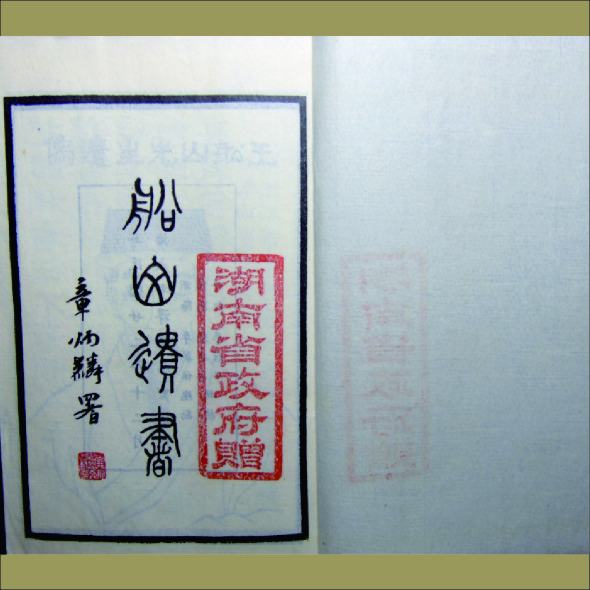 湖南省政府贈
船山遺書
章炳麟署